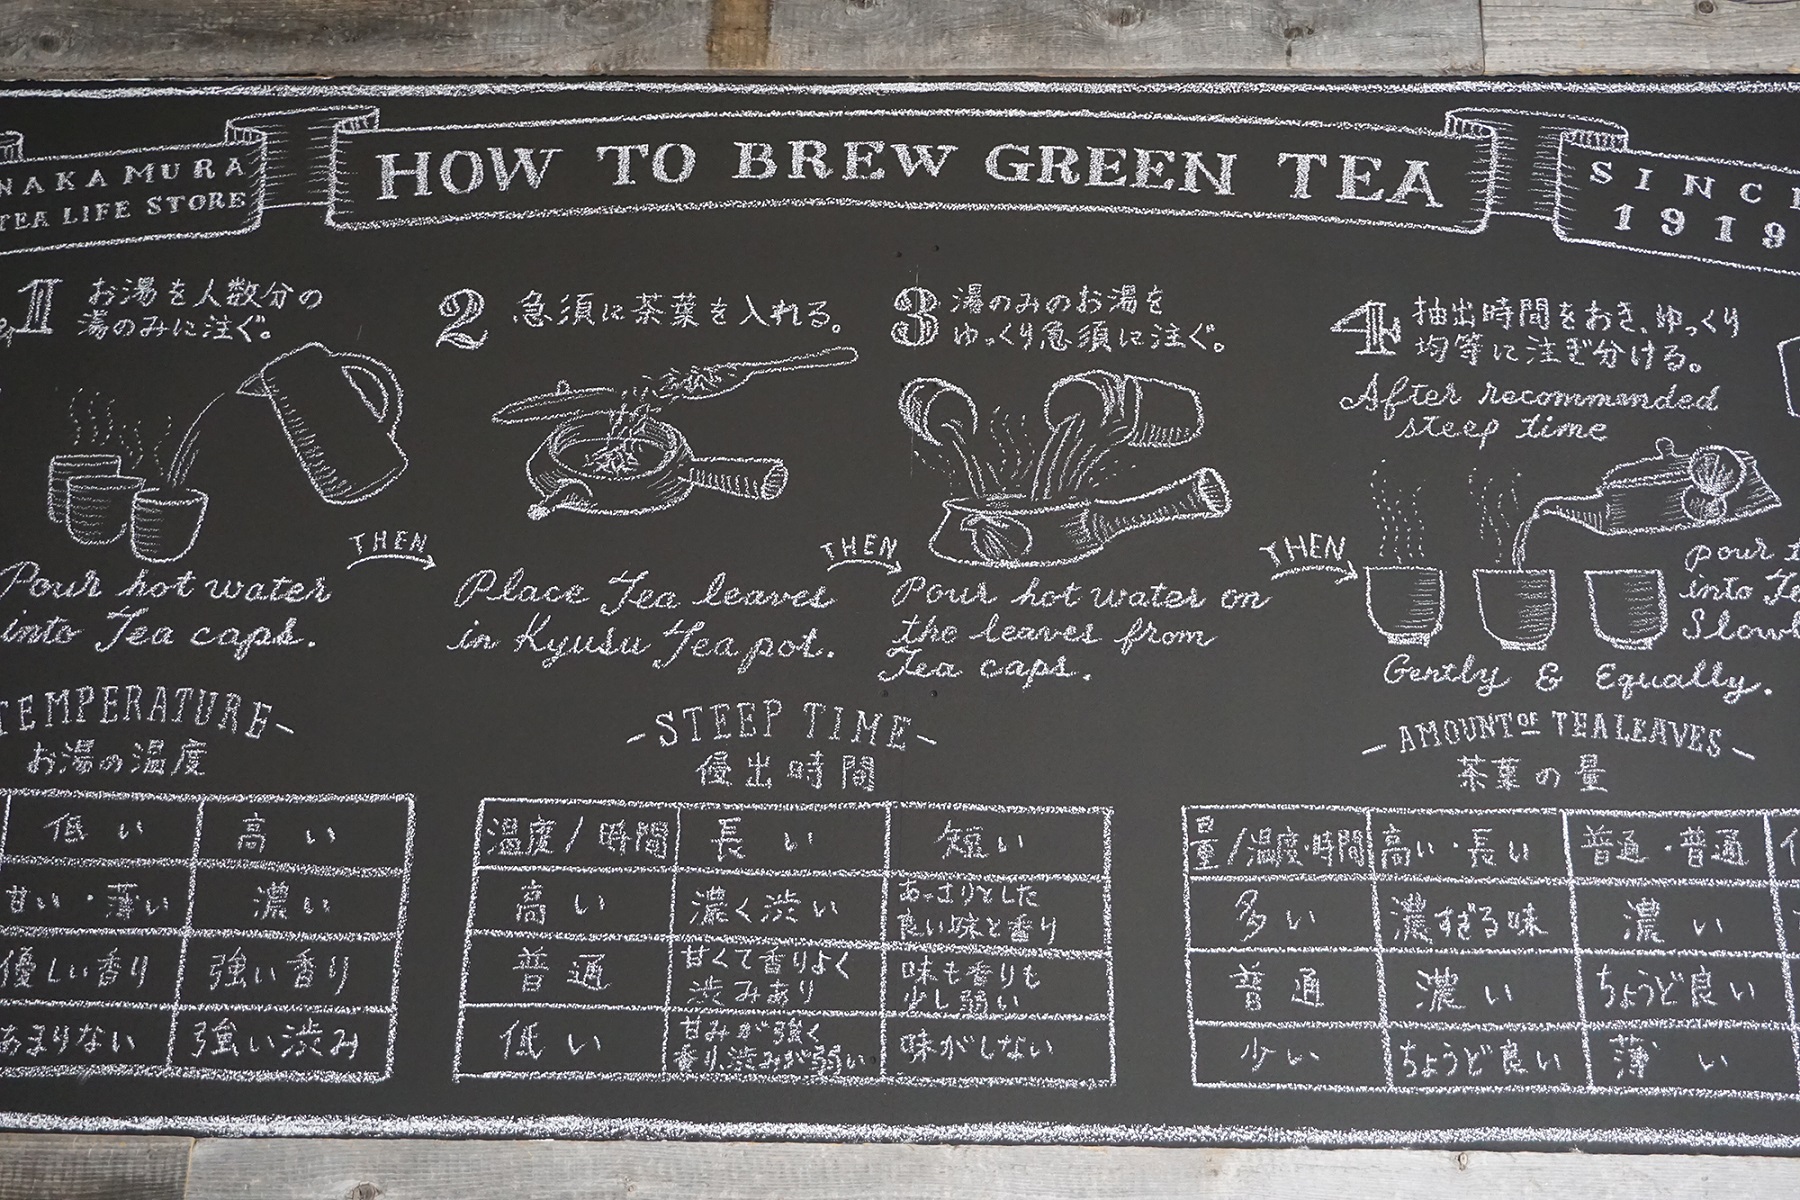 NAKAMURA
TEA LIFE STORE
HOW TO BREW GREEN TEA
SINCE
1919
1 お湯を人数分の
湯のみに注ぐ。
Pour hot water
into Tea caps.
THEN
2 急須に茶葉を入れる。
Place Tea leaves
in Kyusu Teapot.
THEN
3 湯のみのお湯を
ゆっくり急須に注ぐ。
Pour hot water on
the leaves from
Tea caps.
THEN
4 抽出時間をおき、ゆっくり
均等に注ぎ分ける。
After recommended
steep time
pour
into
Gently & Equally.
TEMPERATURE
お湯の温度
低い 高い
甘い・薄い 濃い
優しい香り 強い香り
あまりない 強い渋み
STEEP TIME
優出時間
温度/時間 長い 短い
高い 濃く渋い あっさりとした
良い味と香り
普通 甘くて香りよく
渋みあり 味も香りも
少し弱い
低い 甘みが強く
香り、渋みが弱い 味がしない
AMOUNT OF TEA LEAVES
茶葉の量
量/温度・時間 高い・長い 普通・普通
多い 濃すぎる味 濃い
普通 濃い ちょうど良い
少い ちょうど良い 薄い